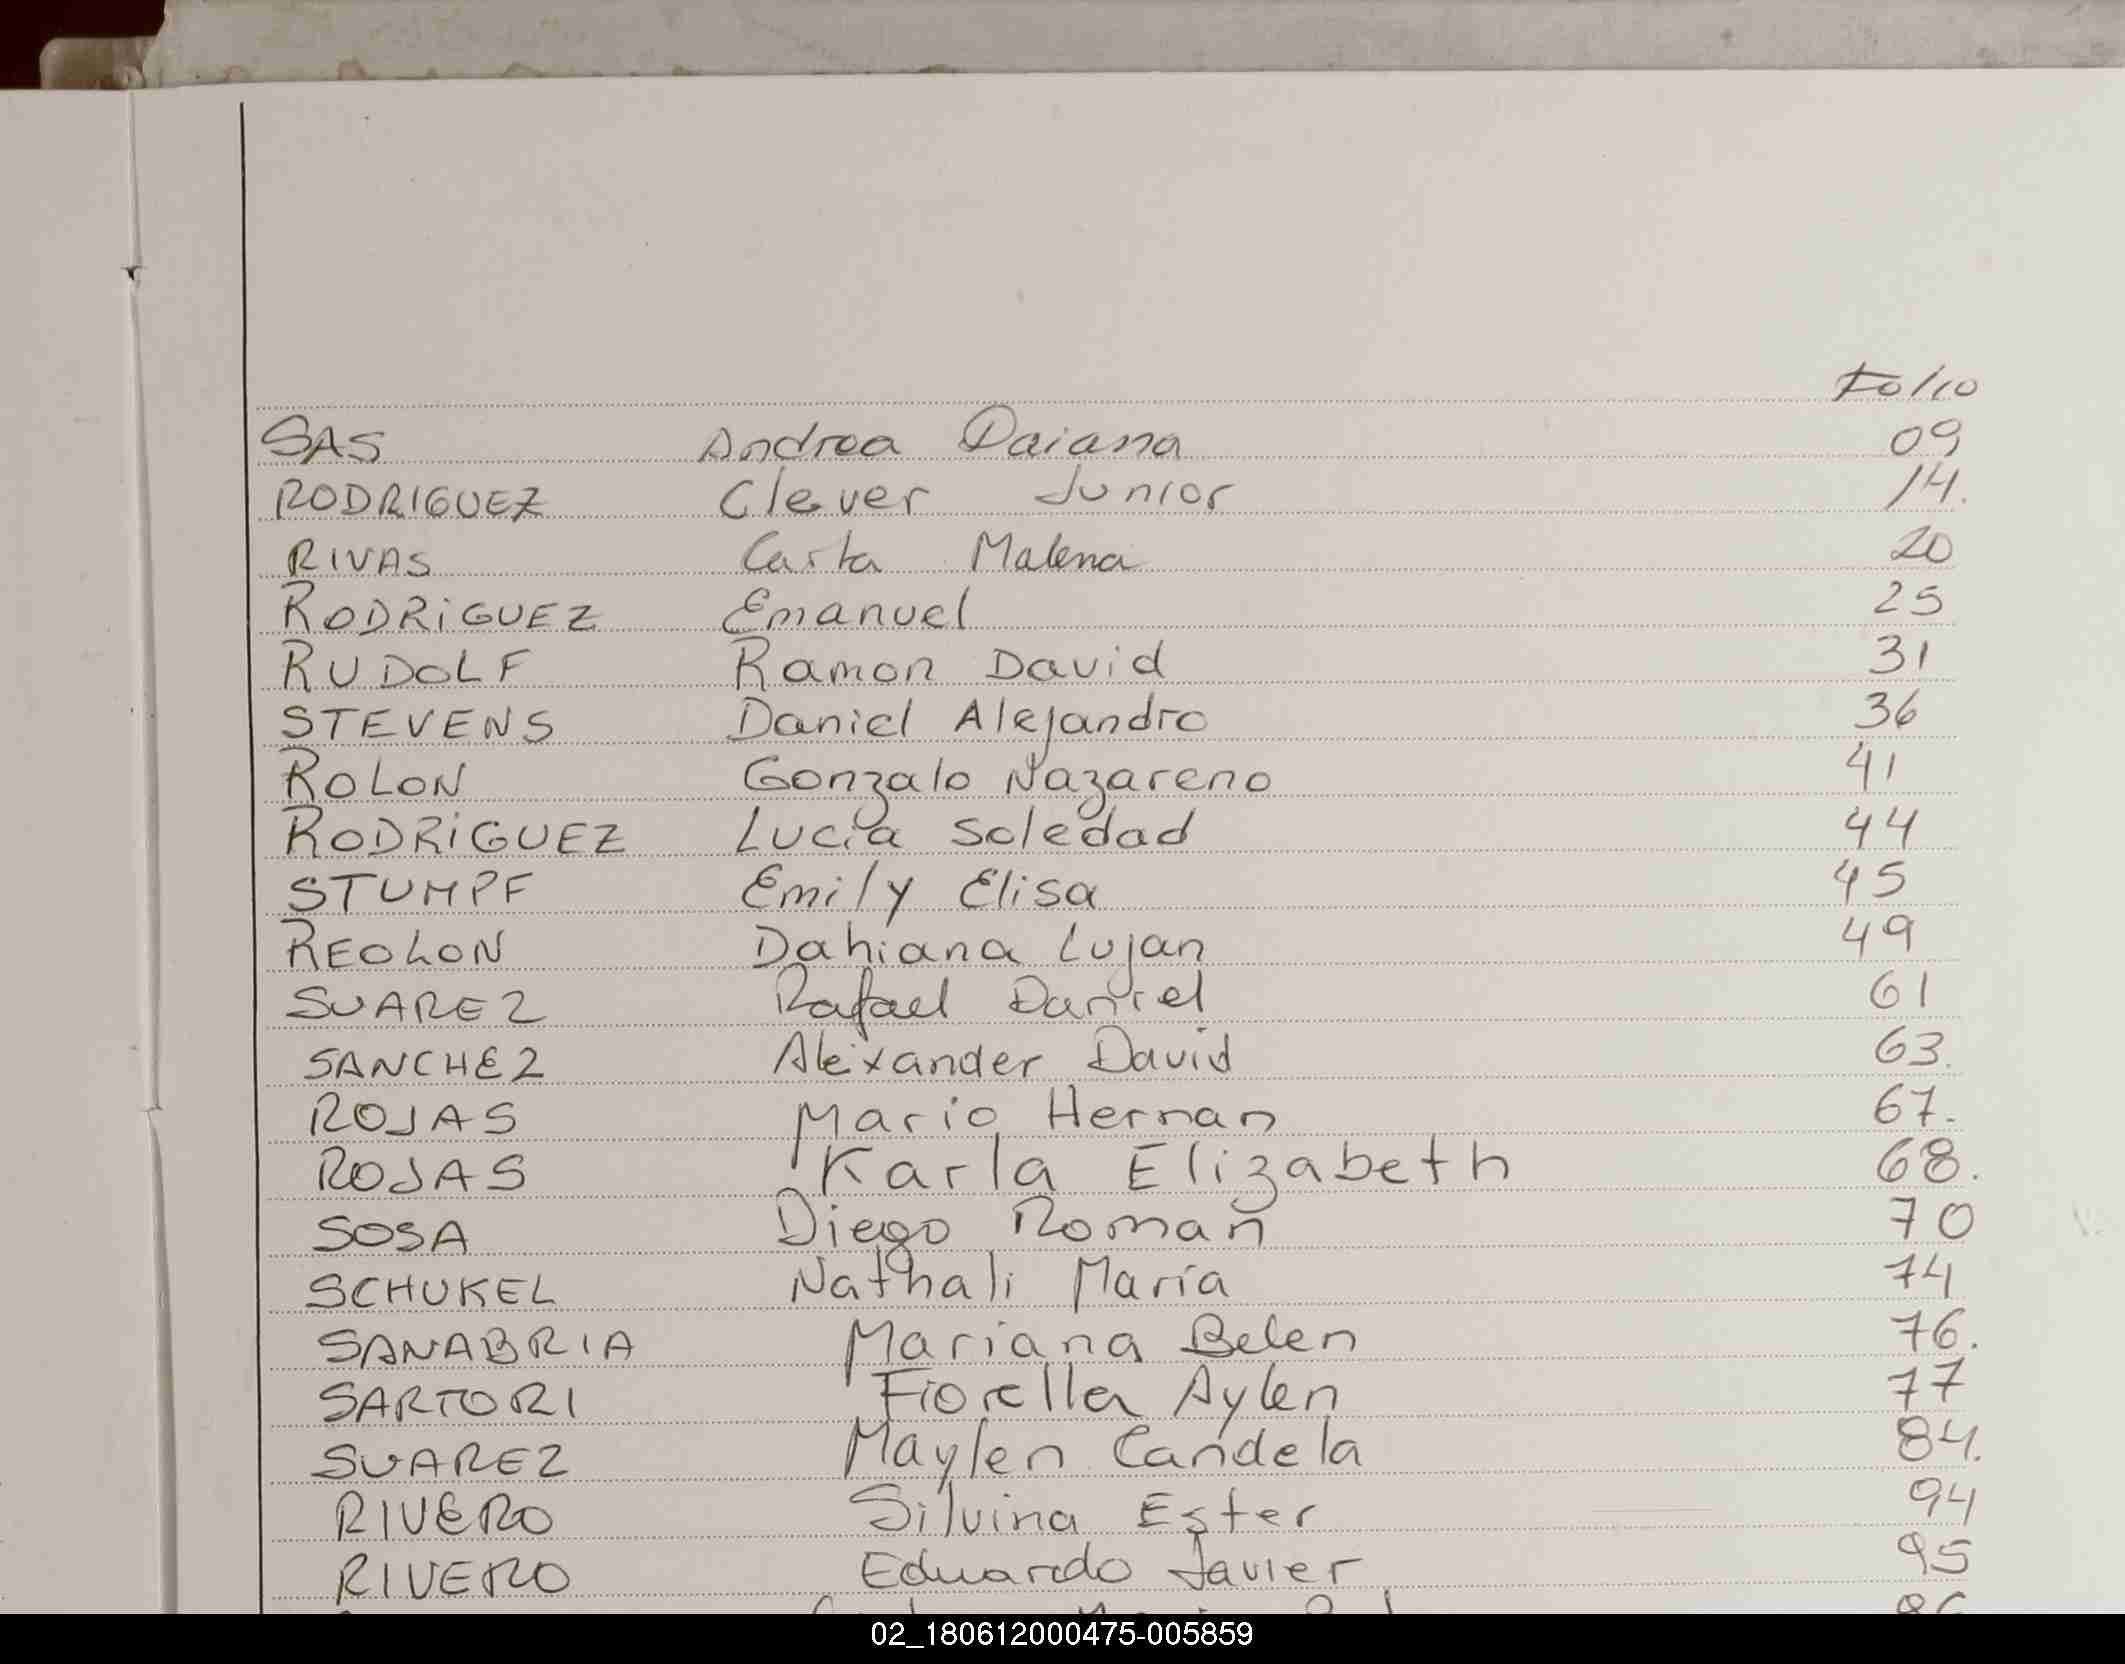 Folio
SAS Andrea Daiana 09
RODRIGUEZ Clever Junior 14.
RIVAS Carla Malena 20
RODRiGUEZ Emanuel 25
RUDOLF Ramon David 31
STEVENS Daniel Alejandro 36
ROLON Gonzalo Nazareno 41
RODRiGUEZ Lucía Soledad 44
STUMPF Emily Elisa 45
REOLON Dahiana Lujan 49
SUAREZ Rafael Daniel 61
SANCHEZ Alexander David 63.
ROJAS Mario Hernan 67.
ROJAS Karla Elizabeth 68.
SOSA Diego Roman 70
SCHUKEL Nathali María 74
SANABRIA Mariana Belen 76.
SARTORI Fiorella Aylen 77
SUAREZ Maylen Candela 84.
RIVERO Silvina Ester 94
RIVERO Eduardo Javier 95
02_180612000475-005859